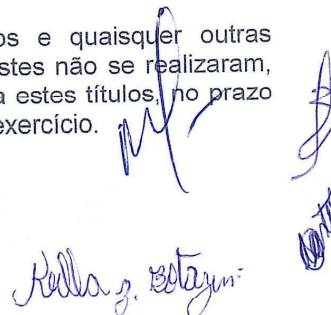 os e quaisquer outras
stes não se realizaram,
a estes títulos, no prazo
exercício.